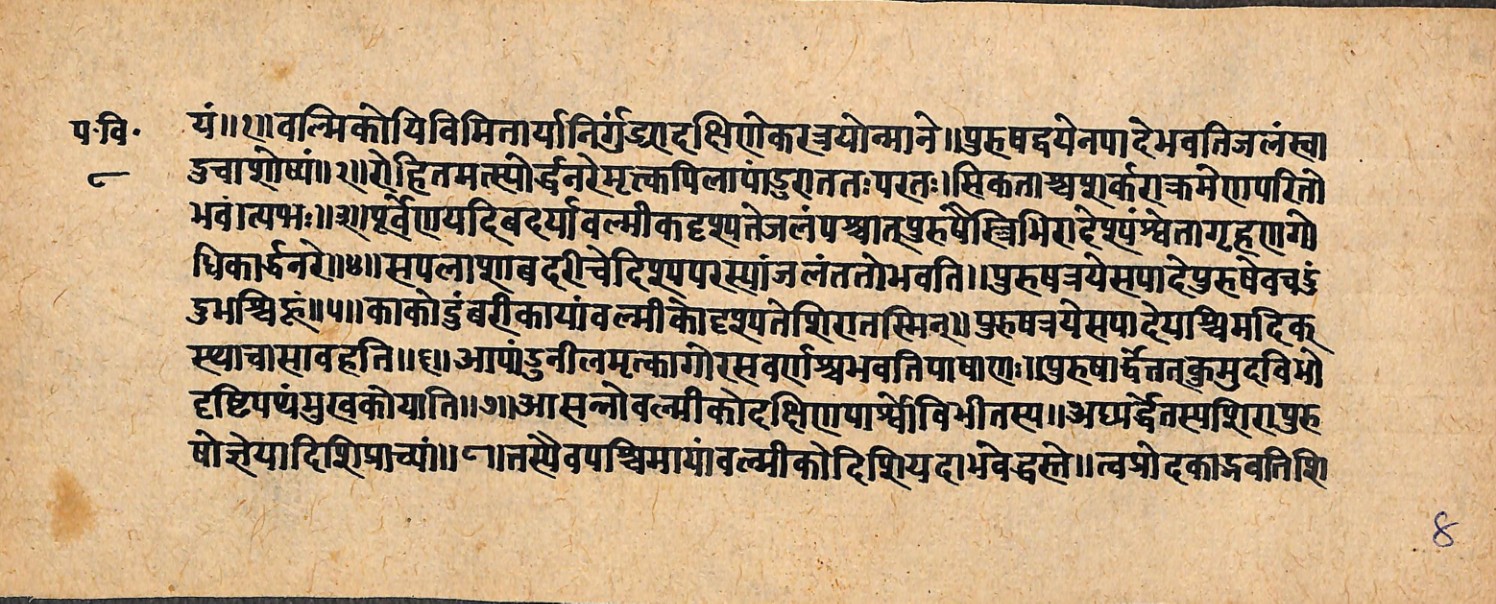 प·वि· यं॥१॥वल्मिकोयिविमितार्यानिर्गुंड्यादक्षिणेकरत्रयोन्माने॥पुरुषद्वयेनपादेभवतिजलंस्वा
८ दुचाशोष्यं॥२॥रोहितमत्स्योर्द्धनरेमृत्कपिलापांडुराततःपरतः।सिकताश्चशर्कराक्रमेणपरितो
भवंत्यंभः॥३॥पूर्वेणयदिबदर्यावल्मीकदृश्यतेजलंपश्चात्पुरुषैस्त्रिभिरादेश्यंश्वेतागृहणगो
धिकार्द्धनरे॥४॥सपलाशाबदरीचेदिश्यपरस्यांजलंततोभवति॥पुरुषत्रयेसपादेपुरुषेवचडुं
डुभश्चिह्नं॥५॥काकोडुंबरीकायांवल्मीकोदृश्यतेशिरातस्मिन्॥पुरुषत्रयेसपादेपाश्चिमदिक्
स्थाचासावहति॥६॥आपांडुनीलमृत्कागोरसवर्णाश्चभवतिपाषाणः॥पुरुषार्द्धेत्तत्कुमुदविभो
दृष्टिपथंमुखकोयाति॥७॥आसन्नोवल्मीकोदक्षिणपार्श्वोविभीतस्य॥अघ्यर्द्धेतस्यशिरापुरु
षोज्ञेयादिशिप्राच्यां॥८॥तस्यैवपश्चिमायांवल्मीकोदिशियदाभवेद्धस्ते॥त्वत्रोदकाद्भवतिशि
8